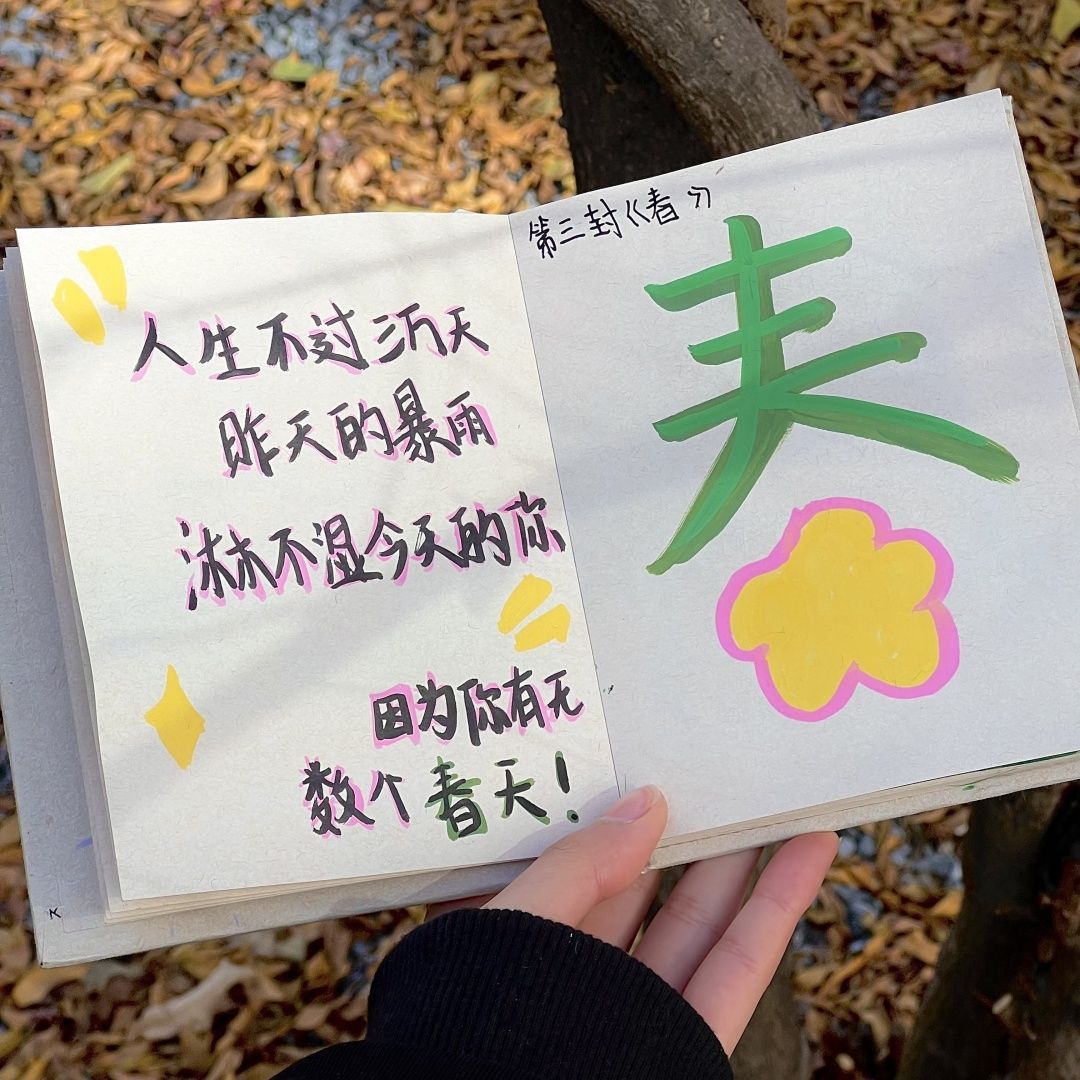 人生不过三万天
昨天的暴雨
淋不湿今天的你
因为你有无
数个春天！
第三封《春》